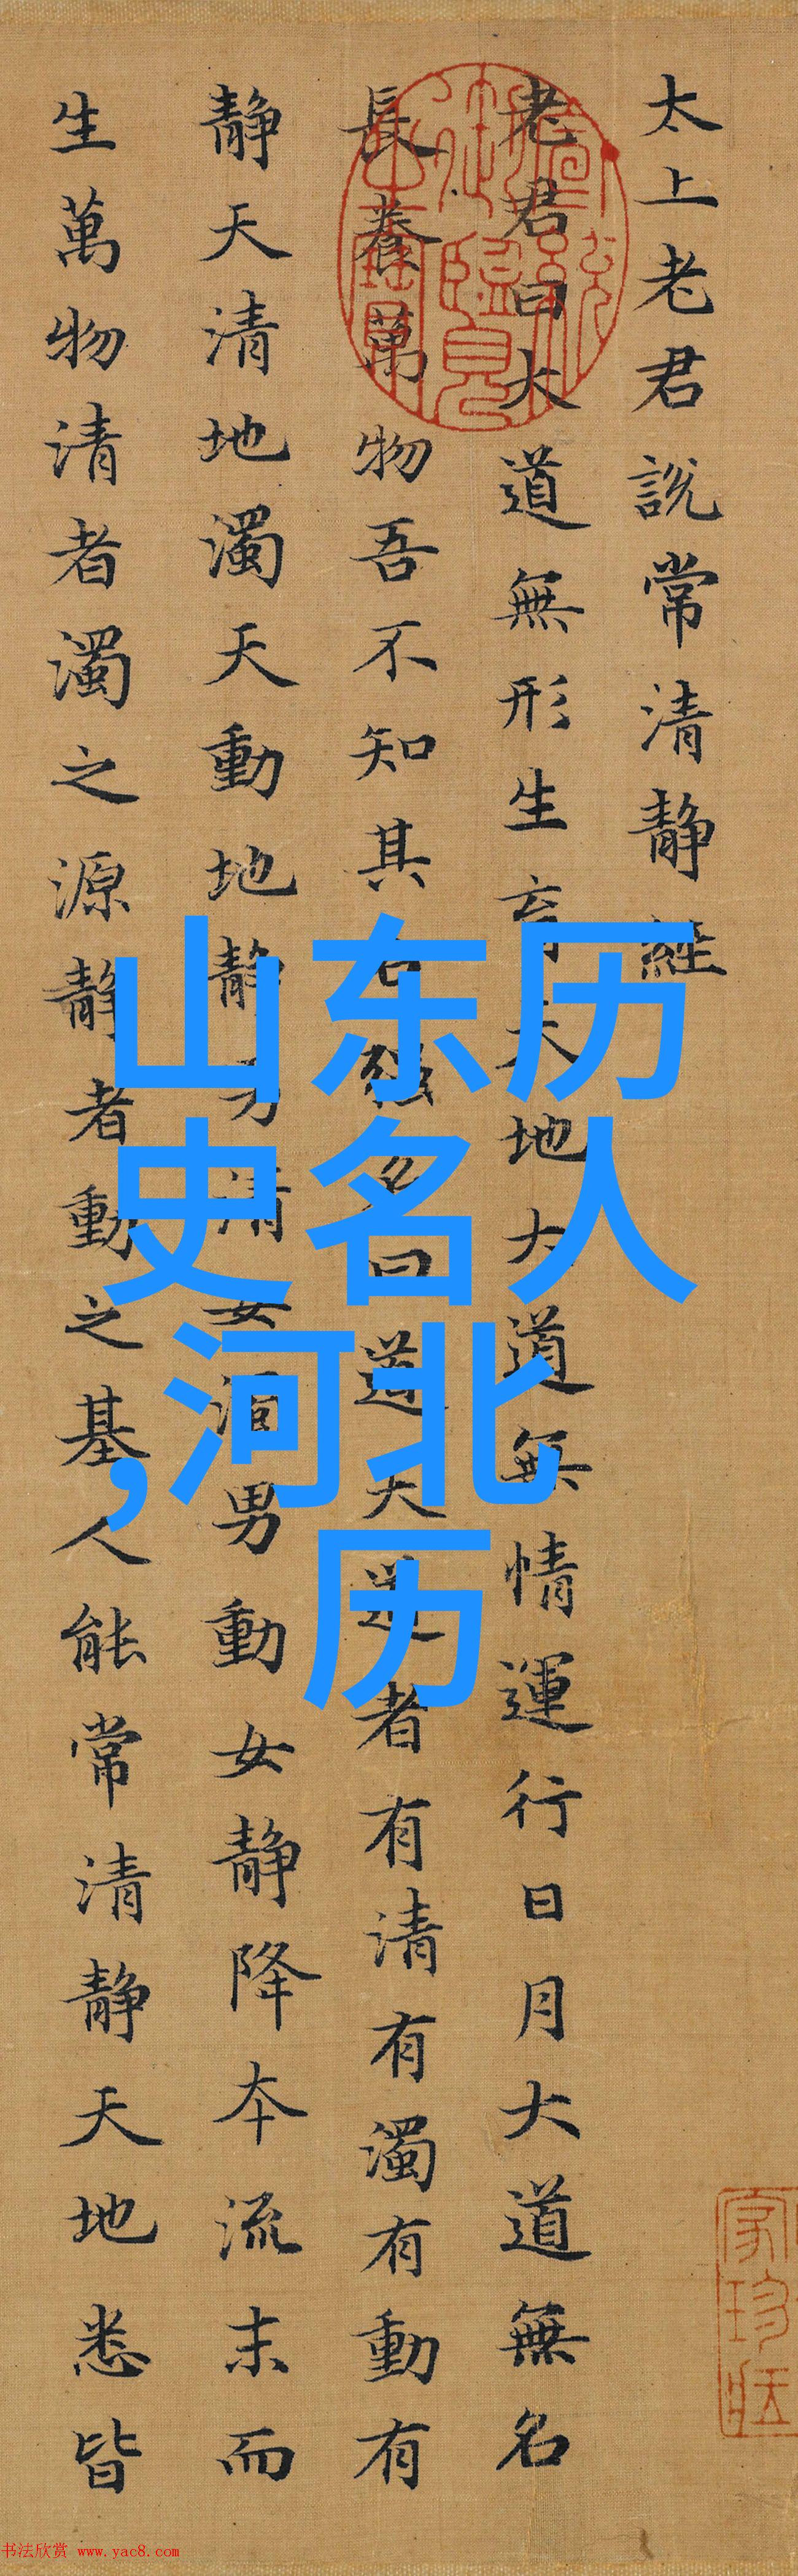 太上老君說常清静經
老君曰大道無形生育天地大道無情運行日月大道無名
長養萬物吾不知其名强名曰道夫道者有清有濁有動有
静天清地濁天動地静男清女濁男動女静降本流末而
生萬物清者濁之源静者動之基人能常清静天地悉皆
宣統御覽之寶
山东历
史名人
,河北
历
书法欣赏 www.yac8.com